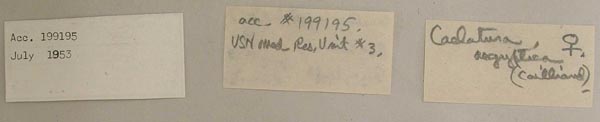 Acc. 199195
July 1953
acc. #199195.
USN Med Res, Unit #3,
Caelatura, ♀
aegyptica
(Cailliaud)